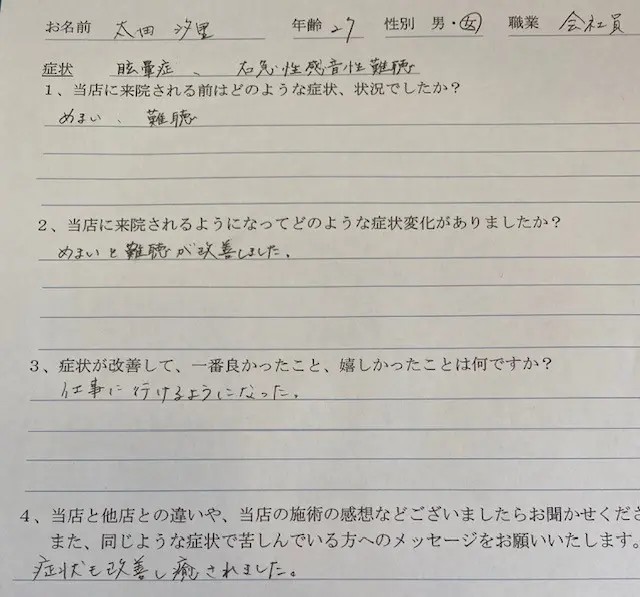 お名前 太田 汐里 年齢 27 性別 男・女 職業 会社員
症状 眩暈症、右急性感音性難聴
1、当店に来院される前はどのような症状、状況でしたか？
めまい、難聴
2、当店に来院されるようになってどのような症状変化がありましたか？
めまいと難聴が改善しました。
3、症状が改善して、一番良かったこと、嬉しかったことは何ですか？
仕事に行けるようになった。
4、当店と他店との違いや、当店の施術の感想などございましたらお聞かせくださ
また、同じような症状で苦しんでいる方へのメッセージをお願いいたします。
症状も改善し癒されました。